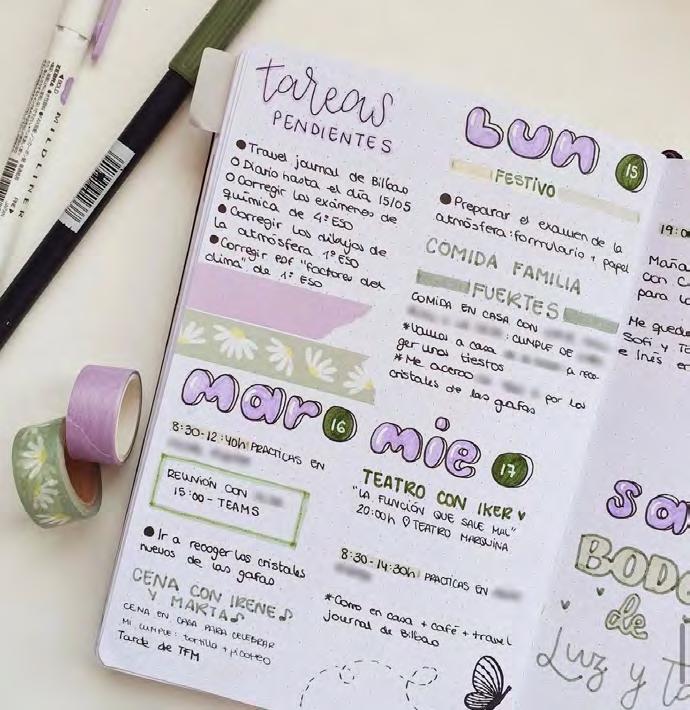 tareas
PENDIENTES
Travel journal de Bilbao
Diario hasta el día 15/05
Corregir los exámenes de
química de 4º ESO
Corregir los dibujos de
la atmósfera 1º ESO
Corregir PDF "factores del
clima" de 1º ESO
LUN 15
FESTIVO
Preparar el examen de la
atmósfera: formulario + papel
COMIDA FAMILIA
FUERTES
COMIDA EN CASA CON
: CUMPLE DE
*Vamos a casa a reco-
ger unos tiestos
*Me acerco por los
cristales de las gafas
mar 16
8:30-12:40h PRACTICAS EN
REUNIÓN CON
15:00 - TEAMS
Ir a recoger los cristales
nuevos de las gafas
CENA CON IRENE
Y MARTA
CENA EN CASA PARA CELEBRAR
MI CUMPLE: tortilla + picoteo
Tarde de TFM
mie 17
TEATRO CON IKER
"LA FUNCIÓN QUE SALE MAL"
20:00h TEATRO MARQUINA
8:30-14:30h PRACTICAS EN
*Como en casa + café + travel
journal de Bilbao
19:0
Maña
con
para
Me qued
Sofi y
e Inés en
sa
BODA
de
Luz y
MILDLINER
ZEBRA